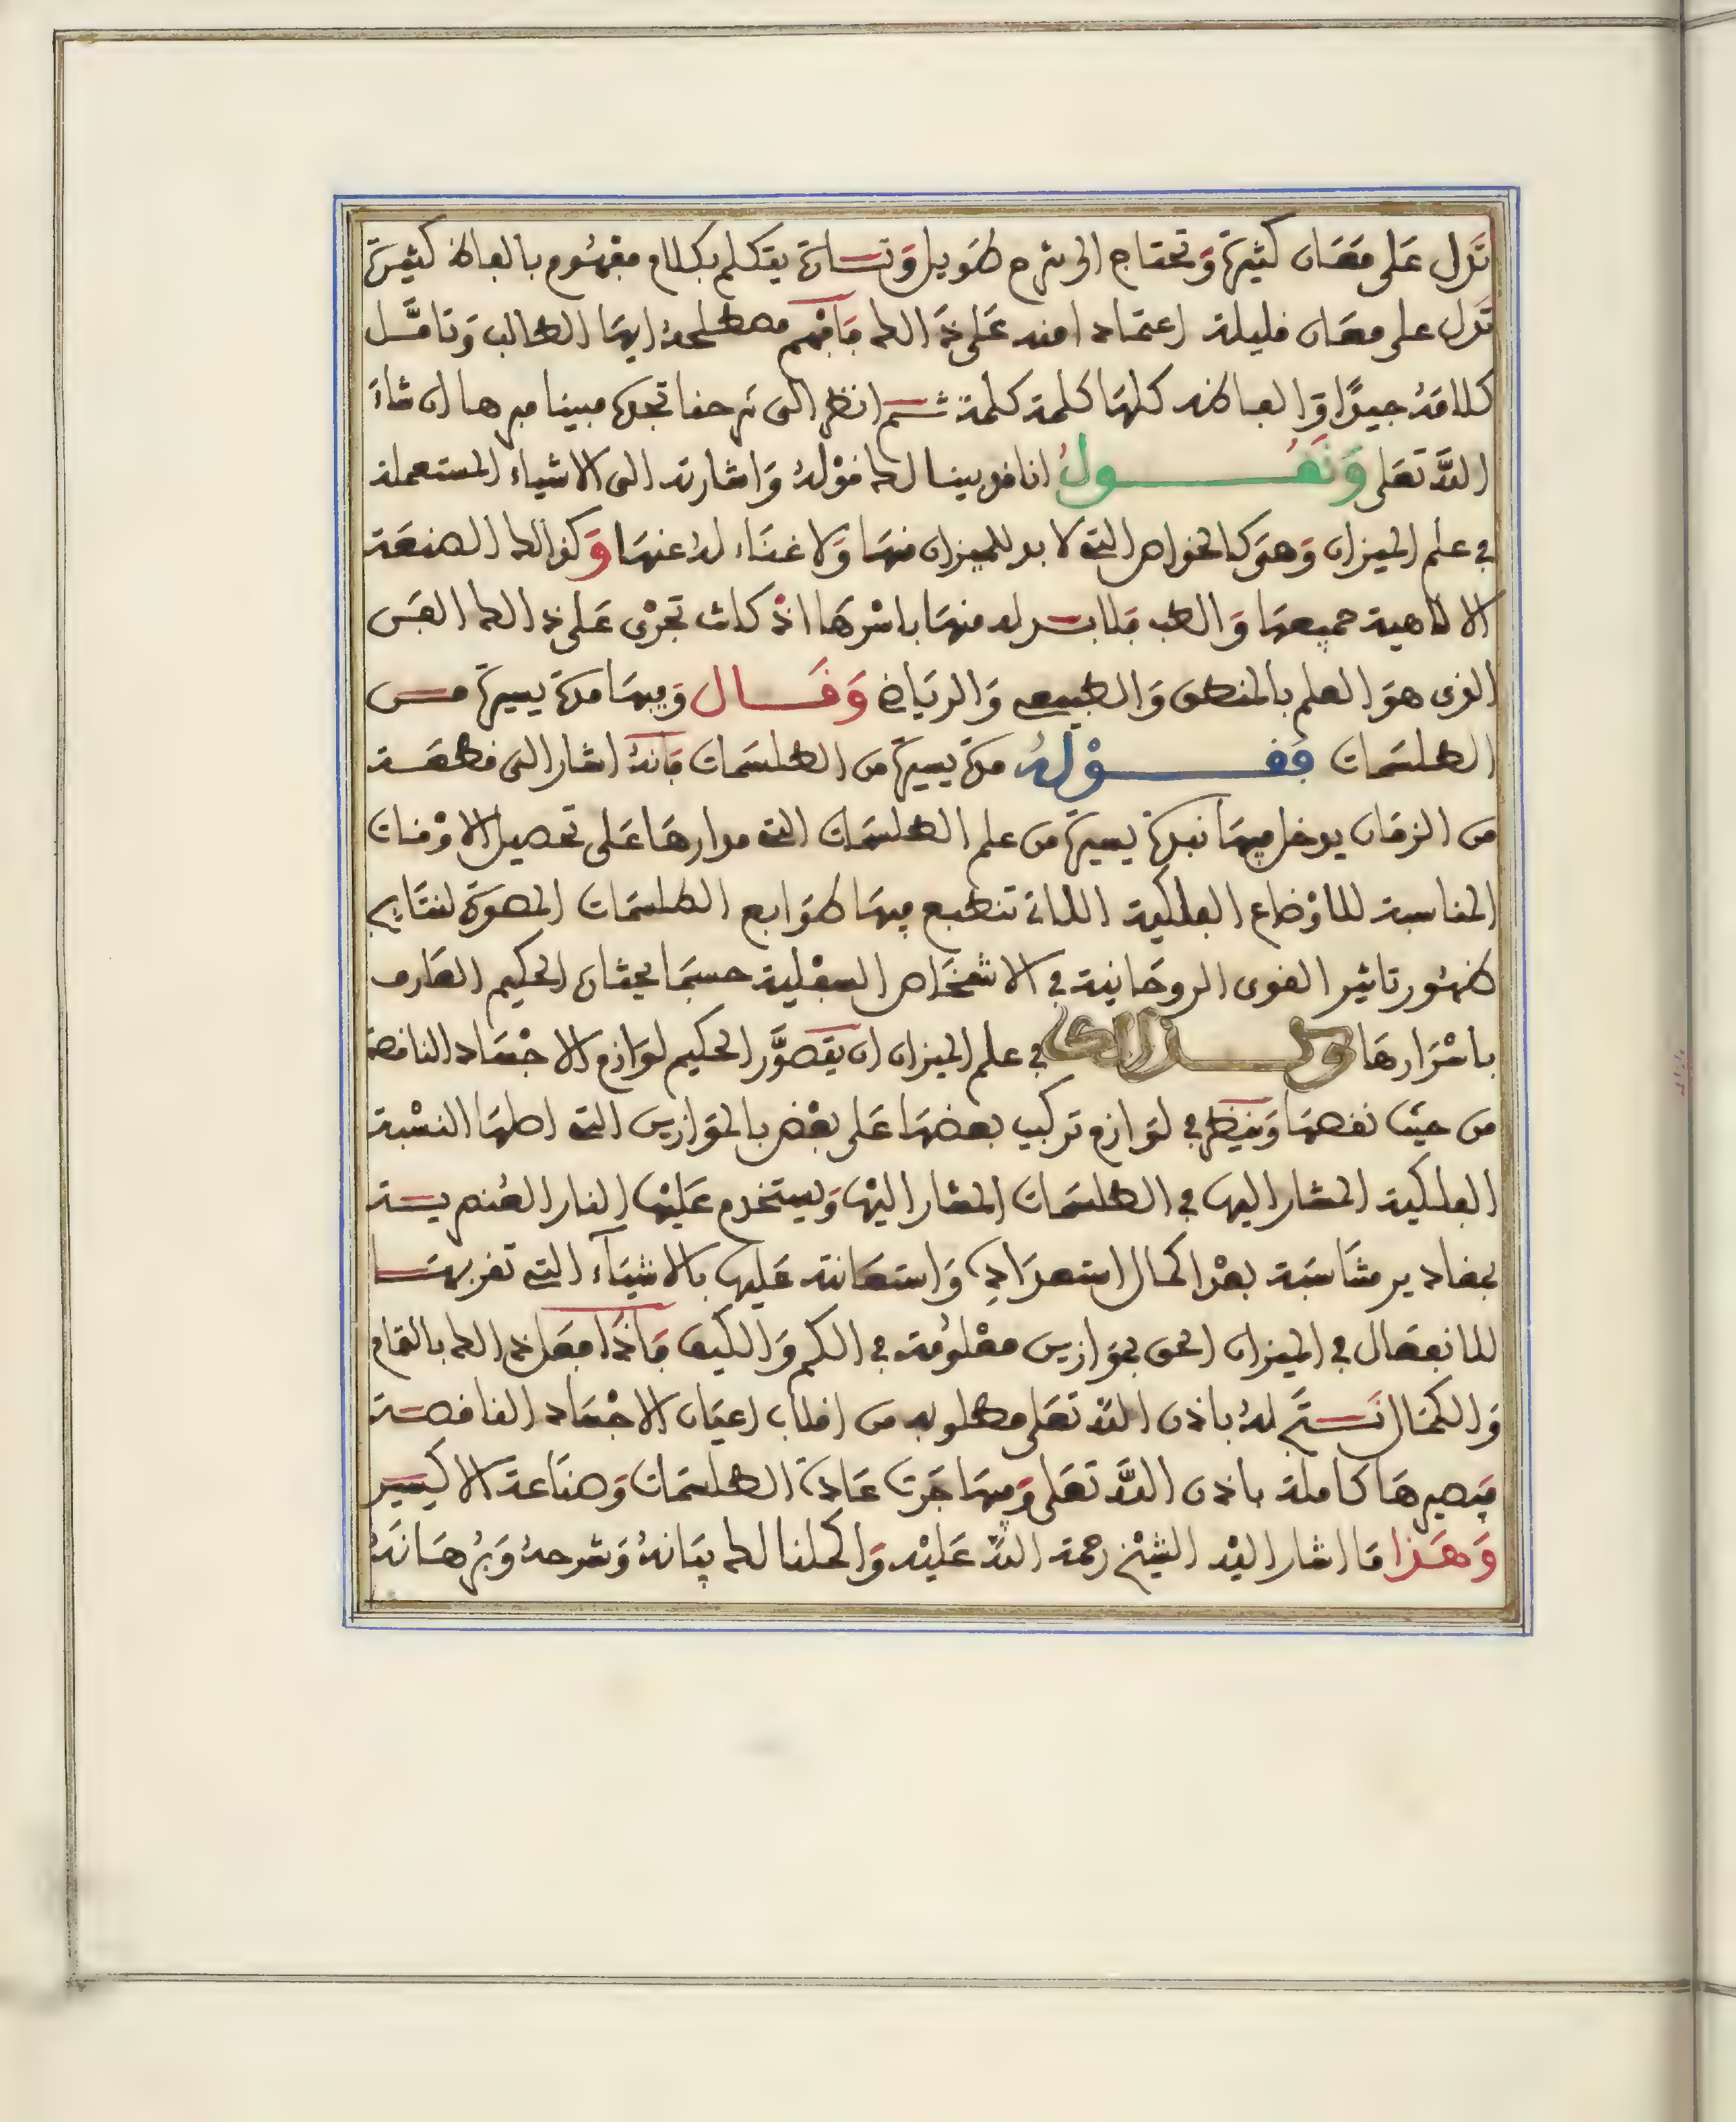 تدل على معان كثيرة وتحتاج الى شرح طويل وتارة يتكلم بكلام مفهوم بالفاظ كثيرة
تدل على معان قليلة اعتمادا منه على ذالك فافهم مصطلحه ايها الطالب وتامل
كلامه جيدا والفاظه كلها كلمة كلمة ثم انظر الى شرحنا تجده مبينا مبرهنا ان شاء
الله تعلى ونقول انا قد بينا لك قوله واشارته الى الاشياء المستعملة
في علم الميزان وهو كالخواص التي لا بد للميزان منها ولا غناء له عنها وكذالك الصنعة
الالاهية جميعها والطب فلا بد له منها باسرها اذ كانت تجرى على ذالك الفن
الذى هو العلم بالمنطق والطبيعي والرياضي وقال وفيها مدة يسيرة من
الطلسمات فقوله مدة يسيرة من الطلسمات فانه اشار الى قطعة
من الزمان يدخل فيها نبذة يسيرة من علم الطلسمات التي مدارها على تحصيل الاوقات
المناسبة للاوضاع الفلكية اللاتي تنطبع فيها طوابع الطلسمات المصورة لنتايج
ظهور تاثير القوى الروحانية في الاشخاص السفلية حسبما يختاره الحكيم العارف
باسرارها وكذالك في علم الميزان ان يتصور الحكيم لوازم الاجساد الناقصة
من حيث نقصها وينظر في لوازم تركيب بعضها على بعض بالموازين التي اصلها النسبة
الفلكية المشار اليها في الطلسمات المشار اليها ويستخدم عليها النار العنصرية
بمقادير مناسبة بعد اكمال استعداده واستعانته عليها بالاشياء التي تقربها
للانفعال في الميزان الحق بموازين معلومة في الكم والكيف فاذا فعل ذالك بالتمام
والكمال تم له باذن الله تعلى مطلوبه من اقلاب اعيان الاجساد الناقصة
فيصيرها كاملة باذن الله تعلى وفيها جرت عادة الطلسمات وصناعة الاكسير
وهذا ما اشار اليه الشيخ رحمة الله عليه واكملنا لك بيانه وشرحه وبرهانه